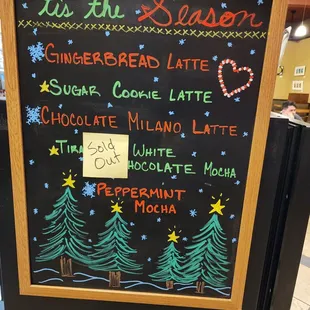 tis the Season
Gingerbread Latte
Sugar Cookie Latte
Chocolate Milano Latte
Sold
Out
White
Mocha
Peppermint
Mocha